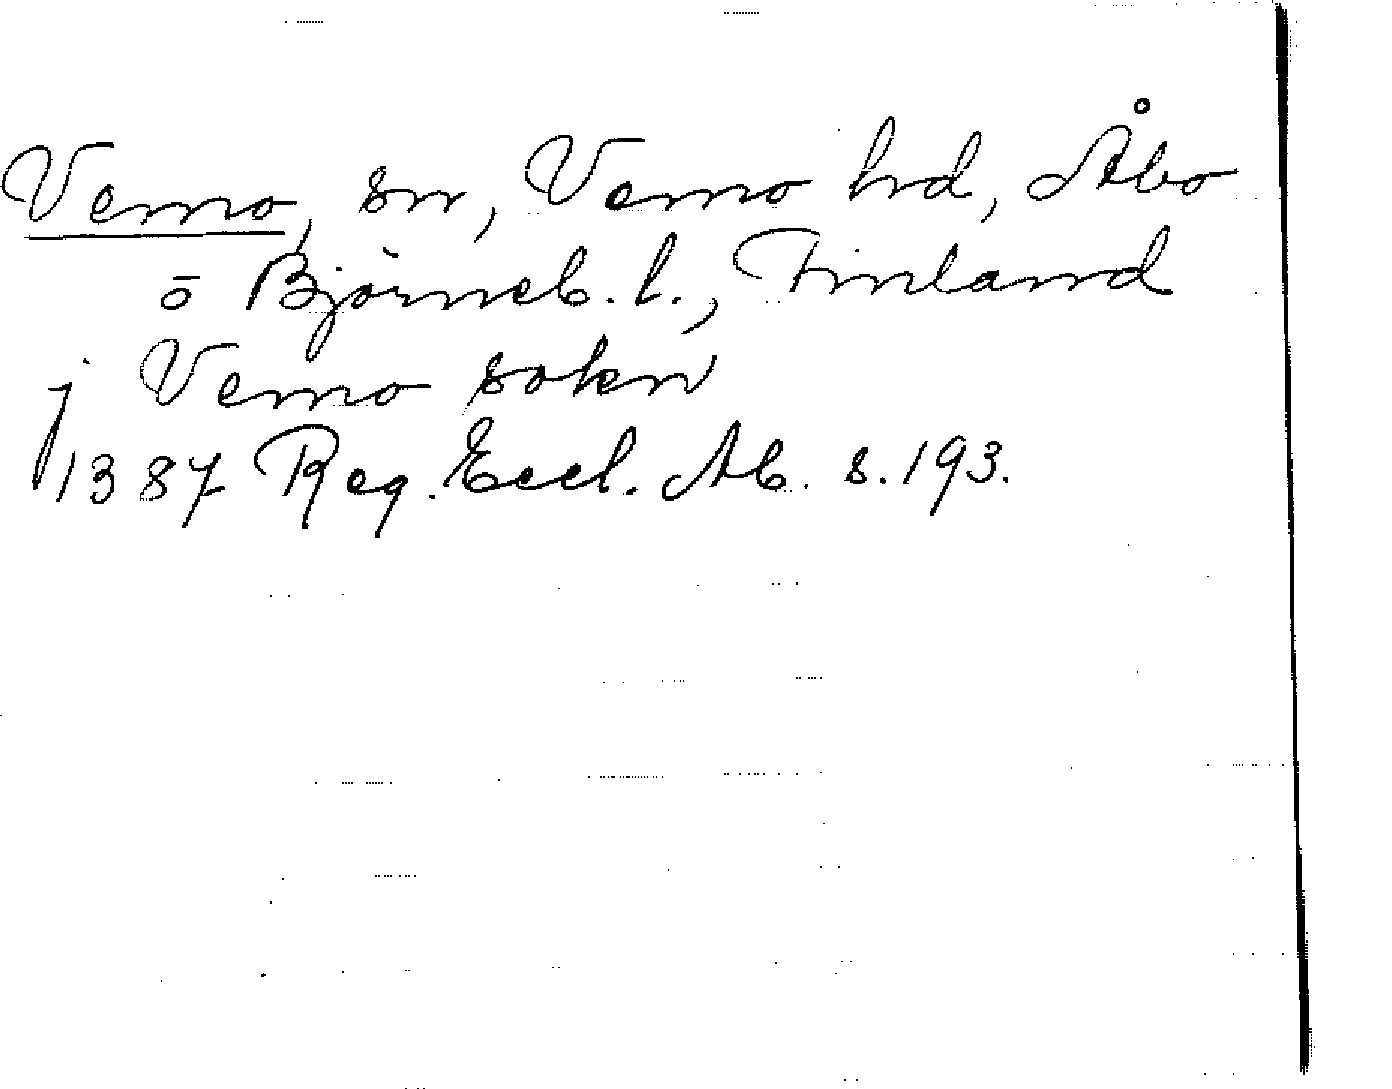 Vemo, sn, Vemo hd, Åbo
o Björneb. l., Finland
j Vemo sokn
1387 Reg. Eccl. Ab. s. 193.